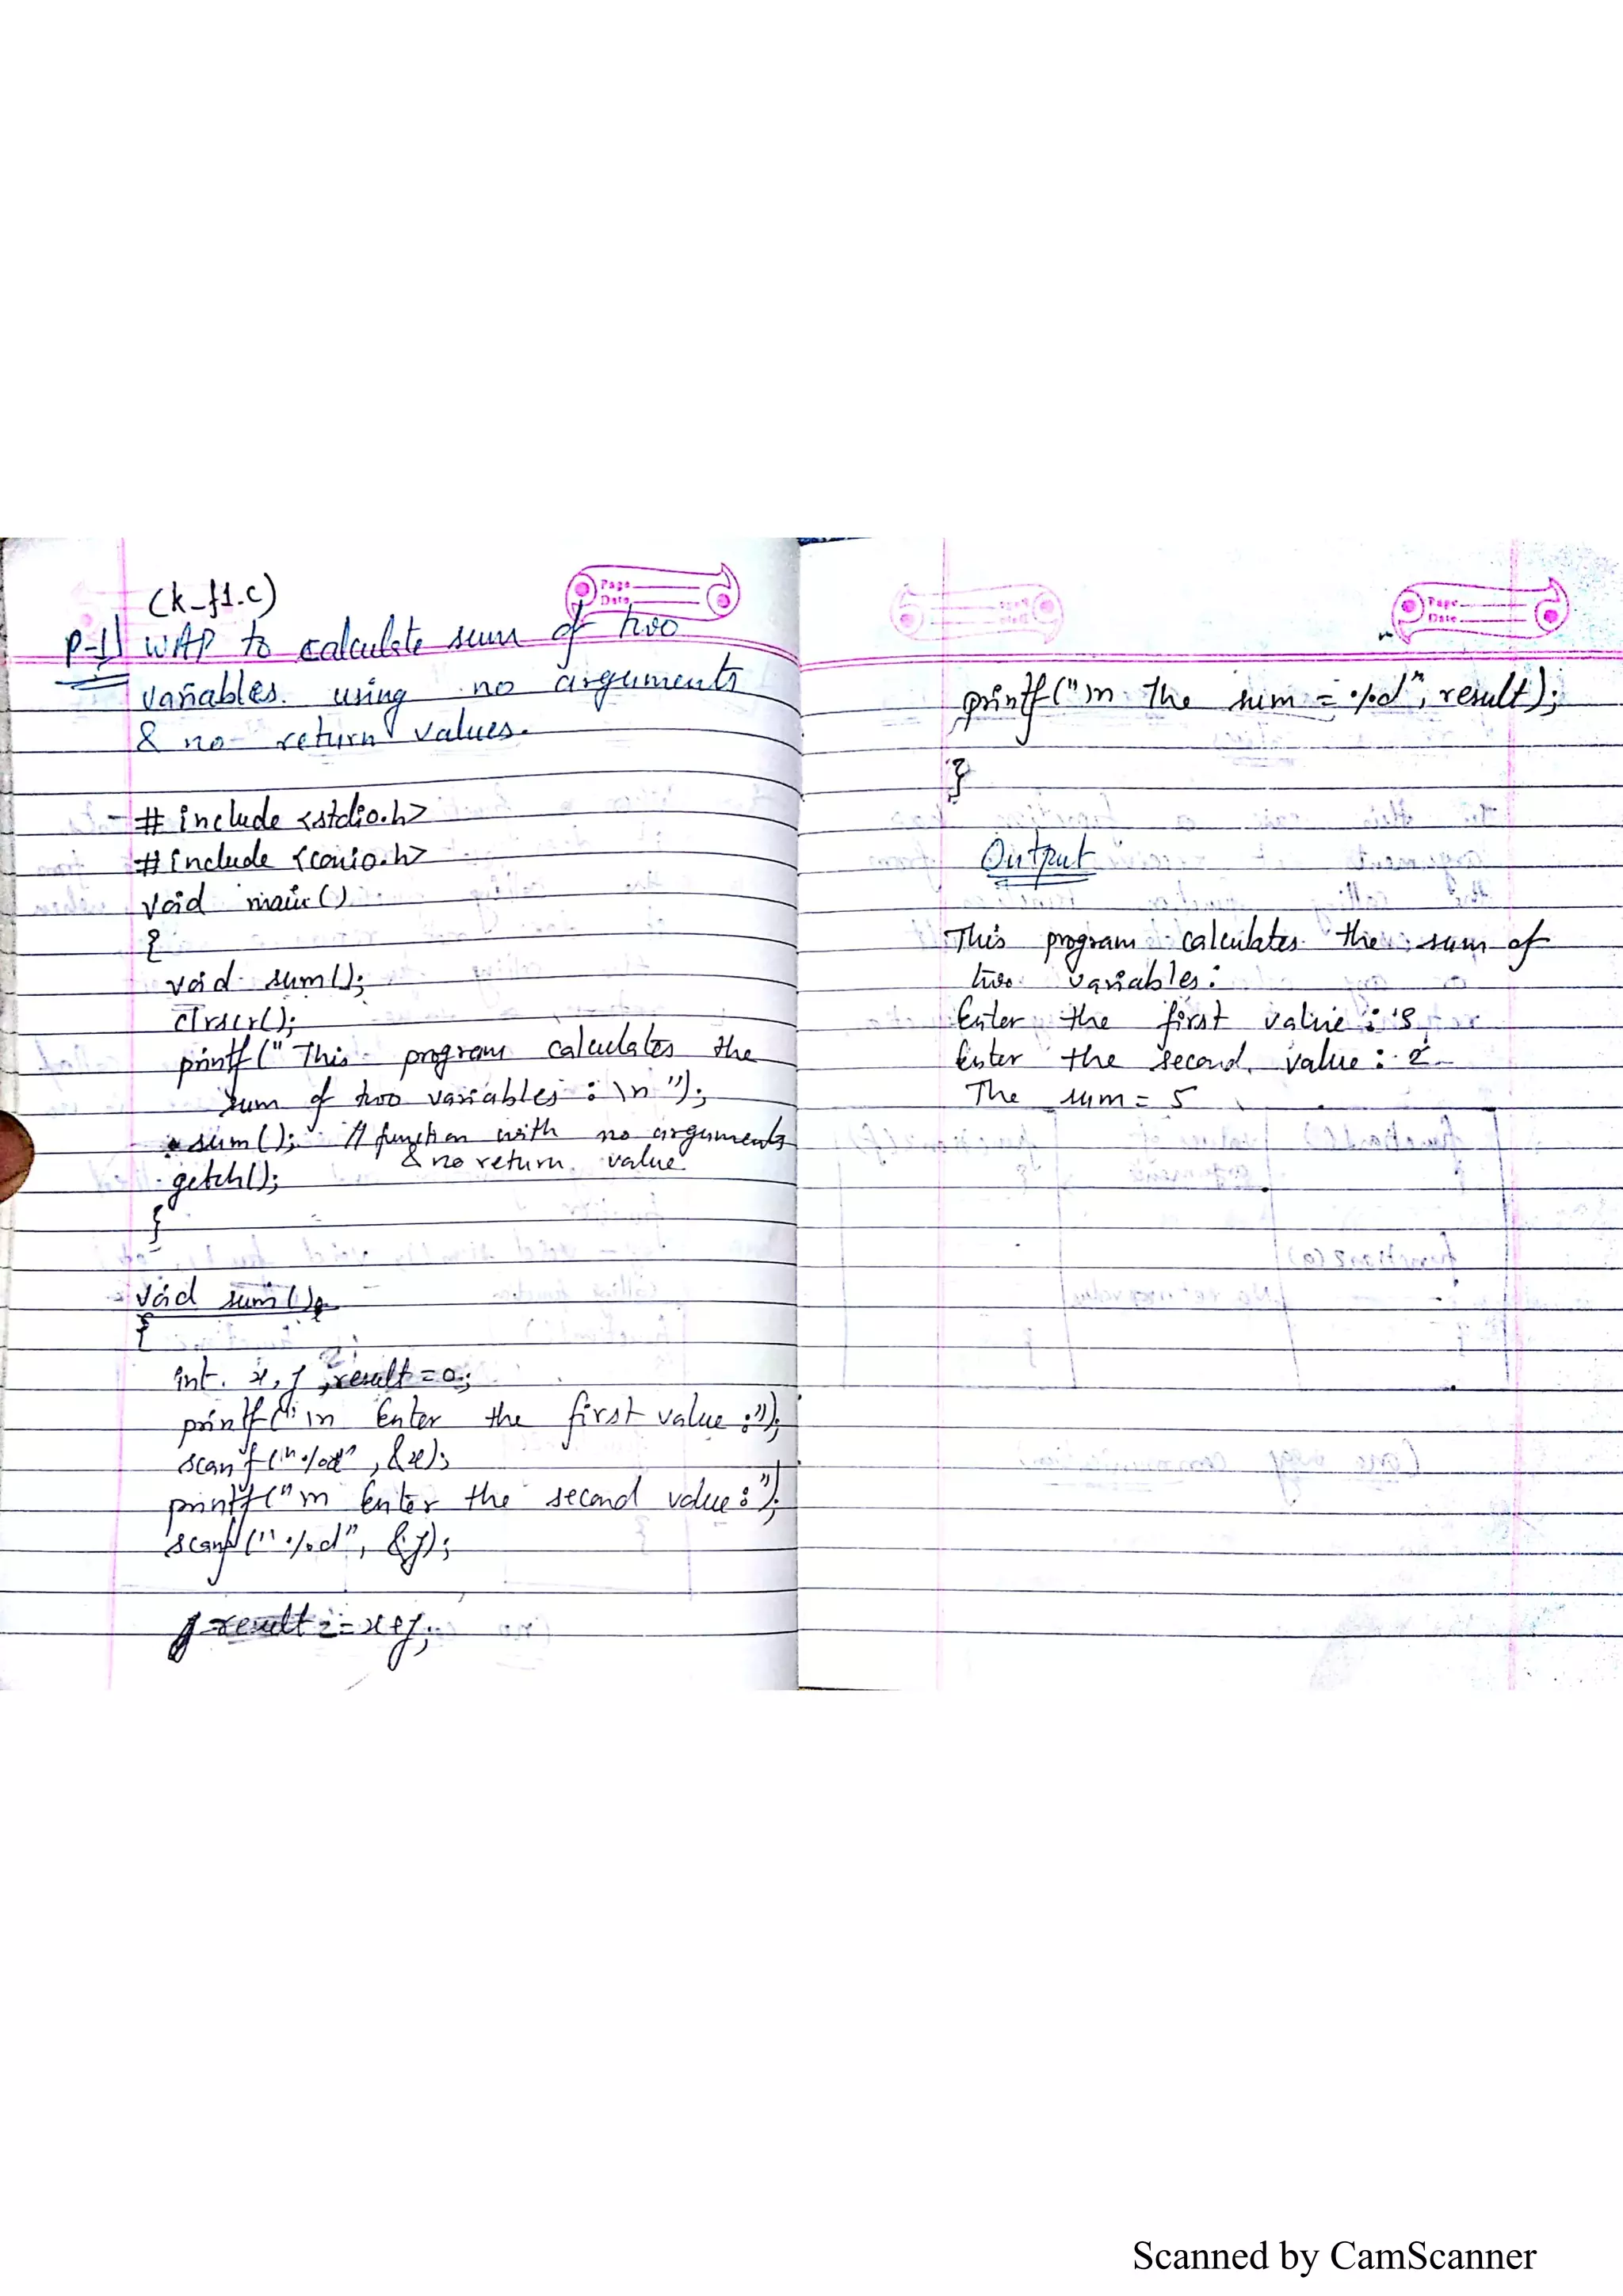 (k_f1.c)
Page
Date
P-1] WAP to calculate sum of two
variables. using no arguments
& no return values.
# include <stdio.h>
# include <conio.h>
void main()
{
void sum();
clrscr();
printf(" This program calculates the
sum of two variables : \n ");
sum(); // function with no arguments
& no return value
getch();
}
void sum()
{
int x, y, result = 0;
printf("\n Enter the first value :");
scanf("%d", &x);
printf("\n Enter the second value :");
scanf("%d", &y);
result = x+y;
Page
Date
printf("\n The sum = %d", result);
}
Output
This program calculates the sum of
two variables :
Enter the first value :
Enter the second value : 2
The sum = 5
Scanned by CamScanner